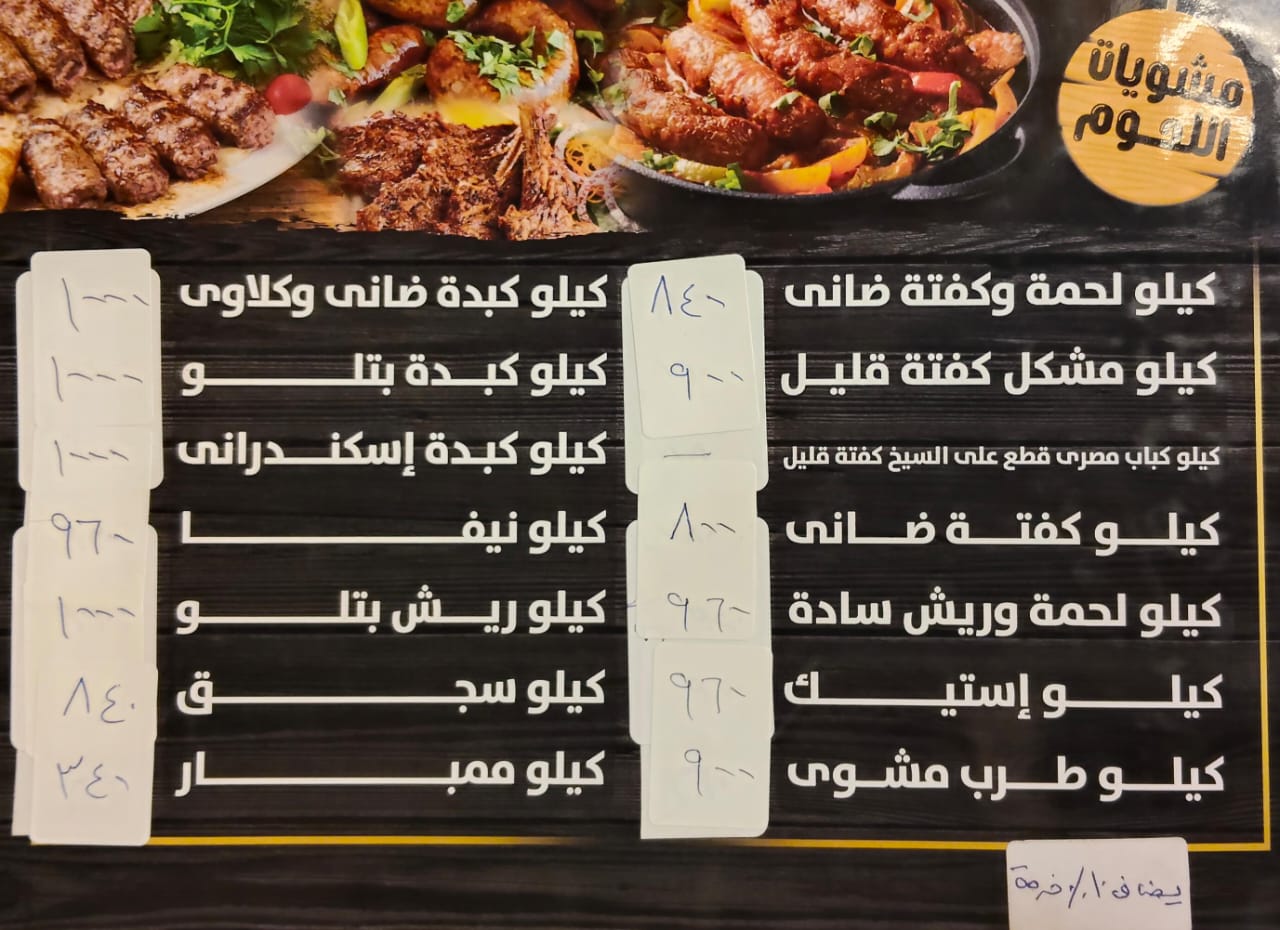 مشويات
اللحوم
كيلو لحمة وكفتة ضانى ٨٤٠
كيلو مشكل كفتة قليل ٩٠٠
كيلو كباب مصرى قطع على السيخ كفتة قليل —
كيلو كفتة ضانى ٨٠٠
كيلو لحمة وريش سادة ٩٦٠
كيلو إستيك ٩٦٠
كيلو طرب مشوى ٩٠٠
كيلو كبدة ضانى وكلاوى ١٠٠٠
كيلو كبدة بتلو ١٠٠٠
كيلو كبدة إسكندرانى ١٠٠٠
كيلو نيفا ٩٦٠
كيلو ريش بتلو ١٠٠٠
كيلو سجق ٨٤٠
كيلو ممبار ٣٤٠
يضاف ١٠٪ خدمة